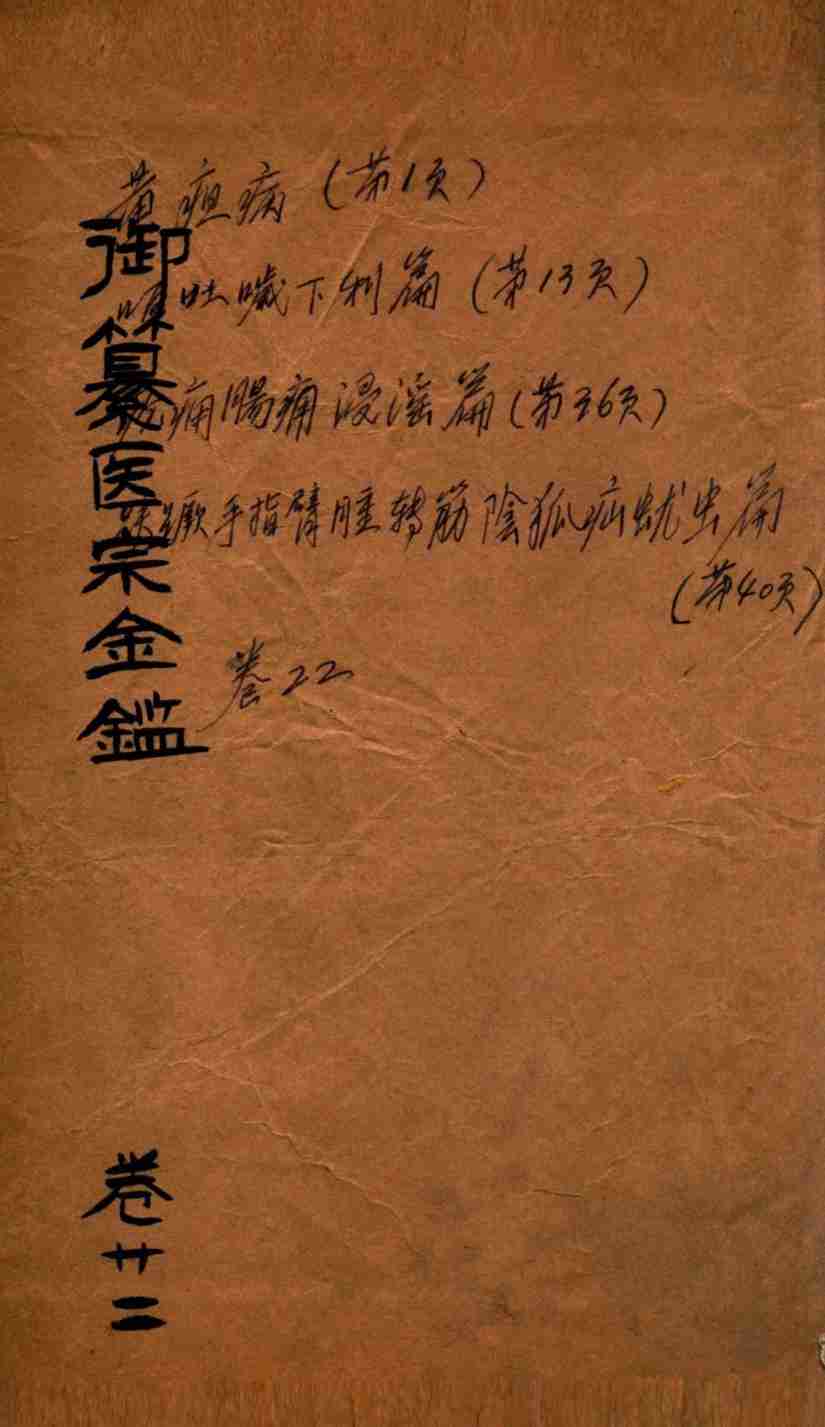 黄疸病(第1页)
吐哕下利篇(第13页)
痈腸痈浸淫篇(第36页)
蹶手指臂腫转筋陰狐疝蚘虫篇
(第40页)
卷22
御纂医宗金鑑
卷廿二